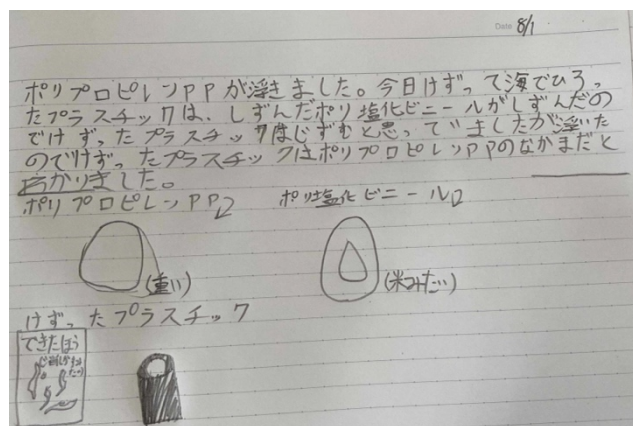 Date 8/1
ポリプロピレンPPが浮きました。今日けずって海でひろっ
たプラスチックは、しずんだポリ塩化ビニールがしずんだの
でけずったプラスチックはしずむと思っていましたが浮いた
のでけずったプラスチックはポリプロピレンPPのなかまだと
わかりました。
ポリプロピレンPP
ポリ塩化ビニール
(重い)
(米みたい)
けずったプラスチック
できたほう